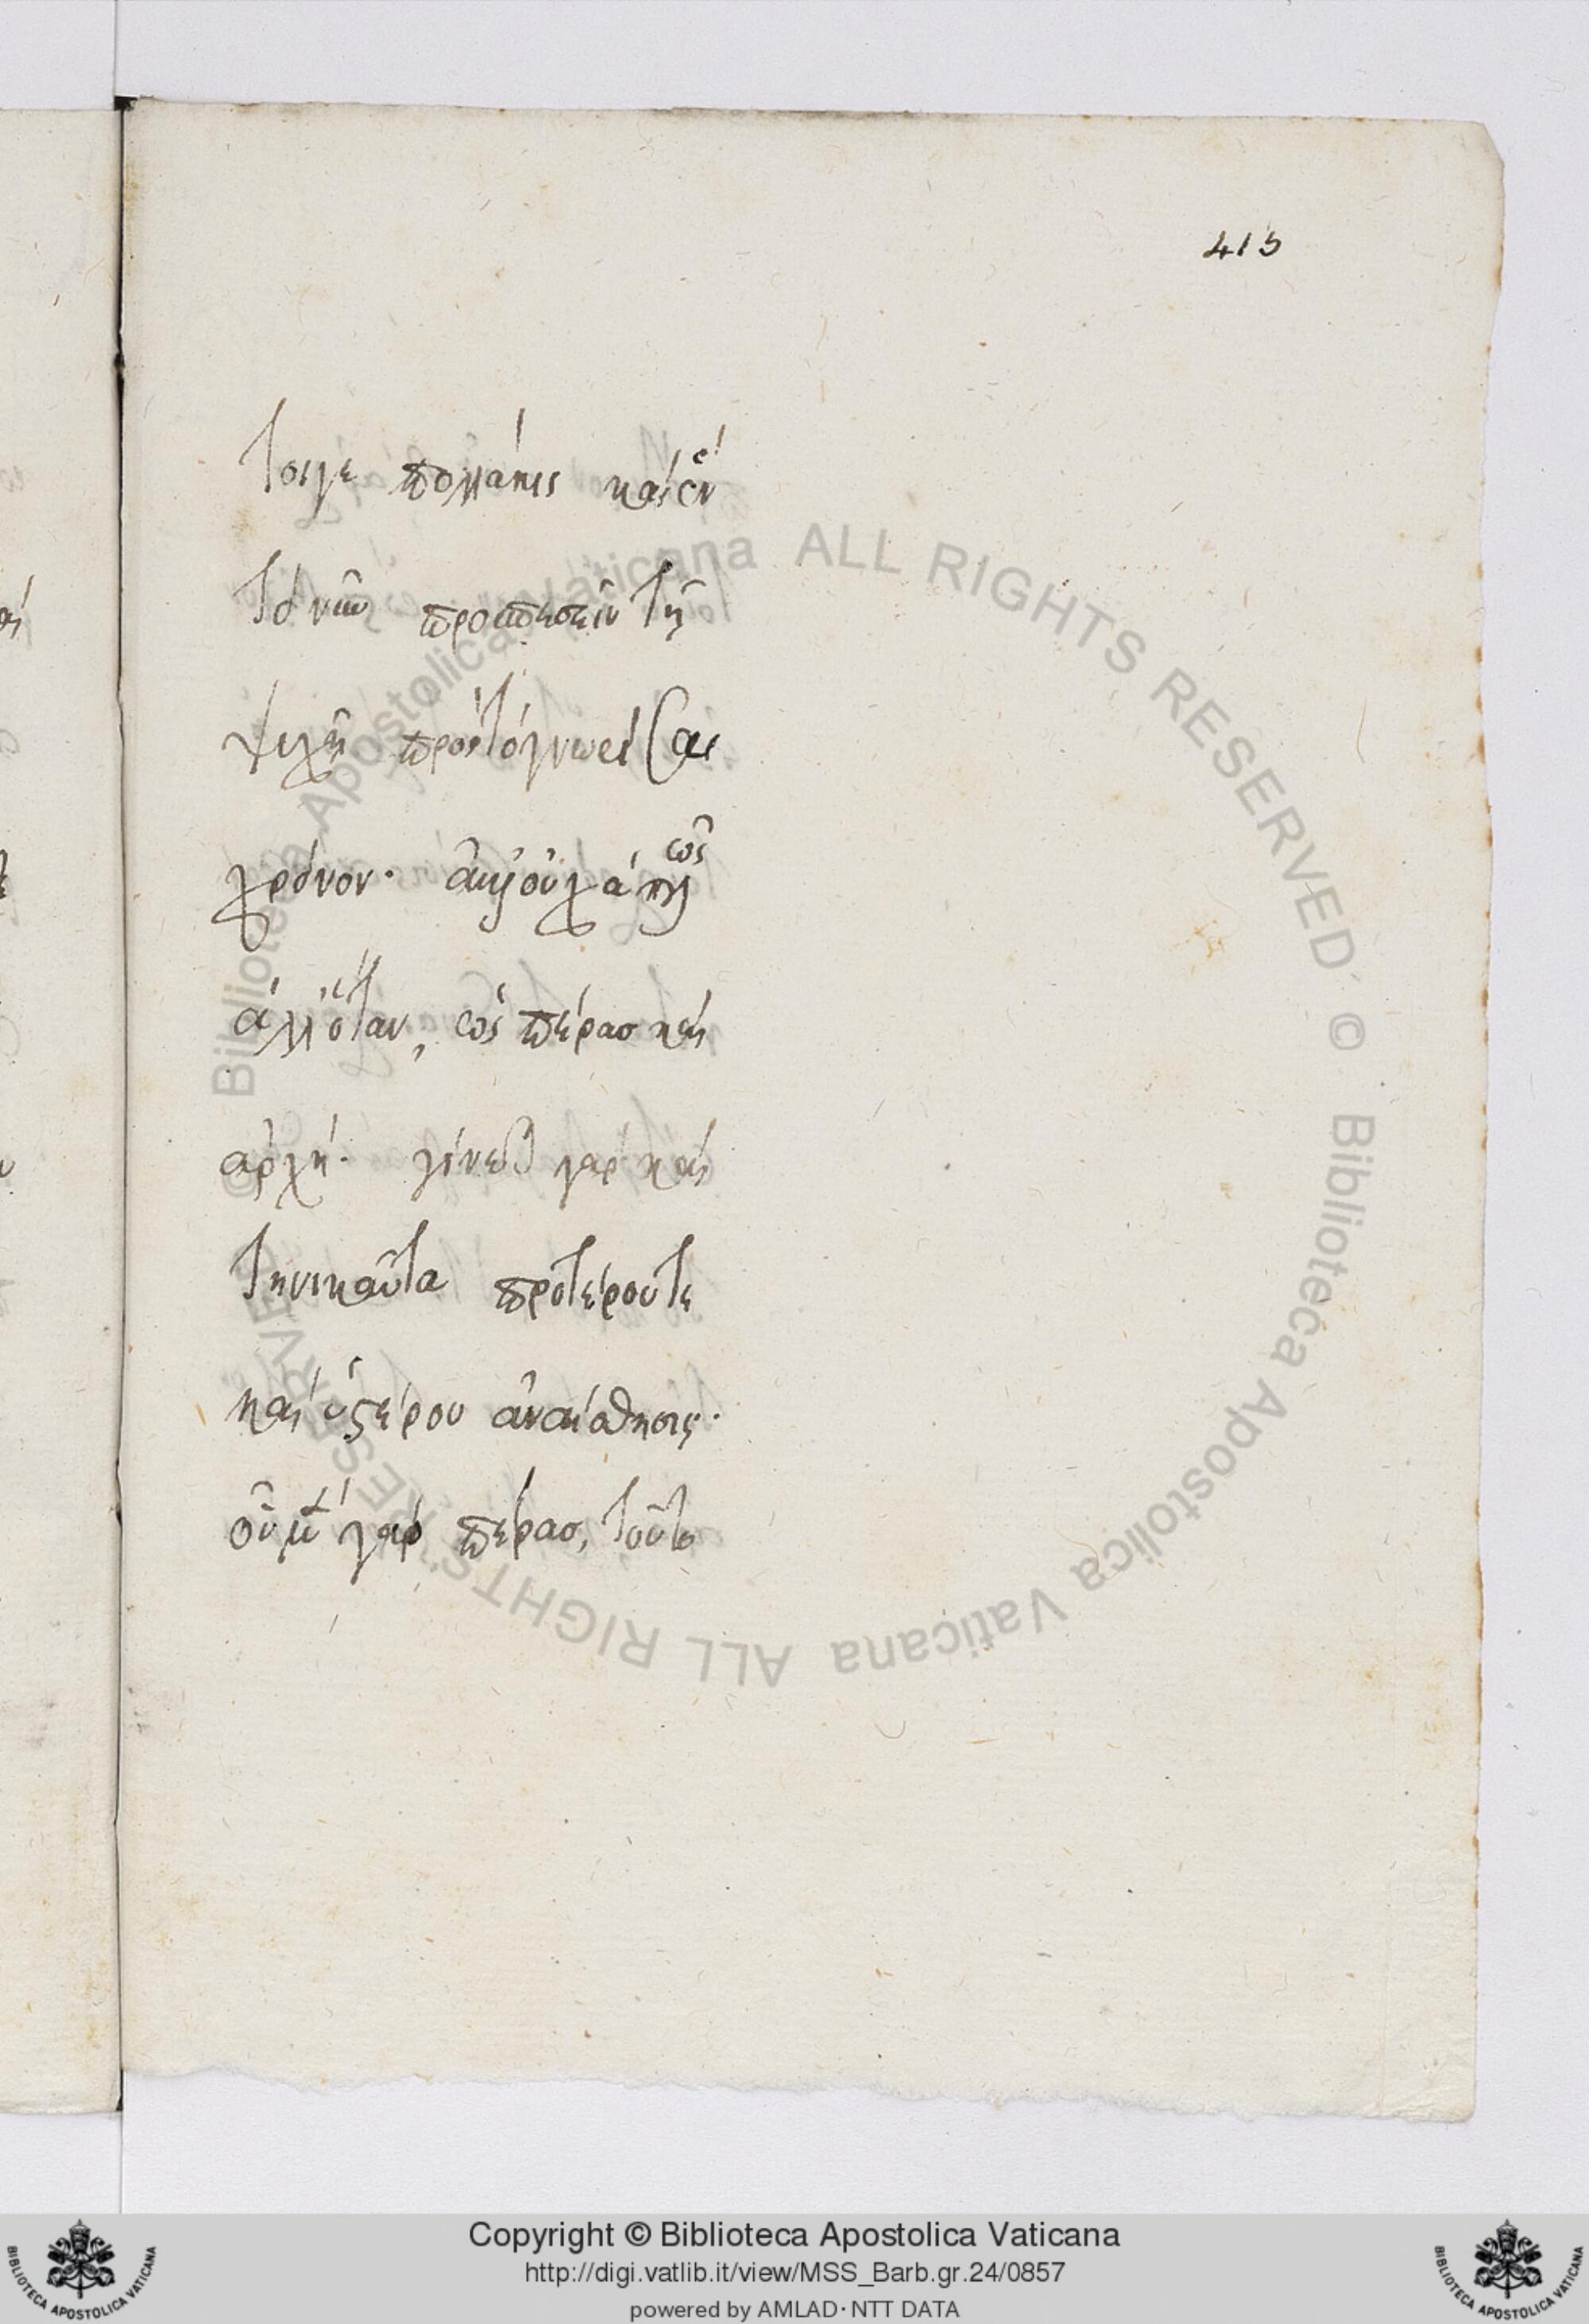 415
τοιγε πολλάκις καὶ ἓν
τὸ νῦν προσπεσεῖν τῇ
ψυχῇ πρὸς τὸ γνωρίσαι
χρόνον. ἀλλ' οὐχ ἁπλῶς
ἀλλ' ὅταν, ὡς πέρας καὶ
ἀρχή. γίνεται γὰρ καὶ
τηνικαῦτα προτέρου τε
καὶ ὑστέρου συναίσθησις.
οὗ μὲν γὰρ πέρας, τοῦτο
Biblioteca Apostolica Vaticana ALL RIGHTS RESERVED ©
Biblioteca Apostolica Vaticana ALL RIGHTS RESERVED ©
Copyright © Biblioteca Apostolica Vaticana
http://digi.vatlib.it/view/MSS_Barb.gr.24/0857
powered by AMLAD·NTT DATA
BIBLIOTECA APOSTOLICA VATICANA
BIBLIOTECA APOSTOLICA VATICANA